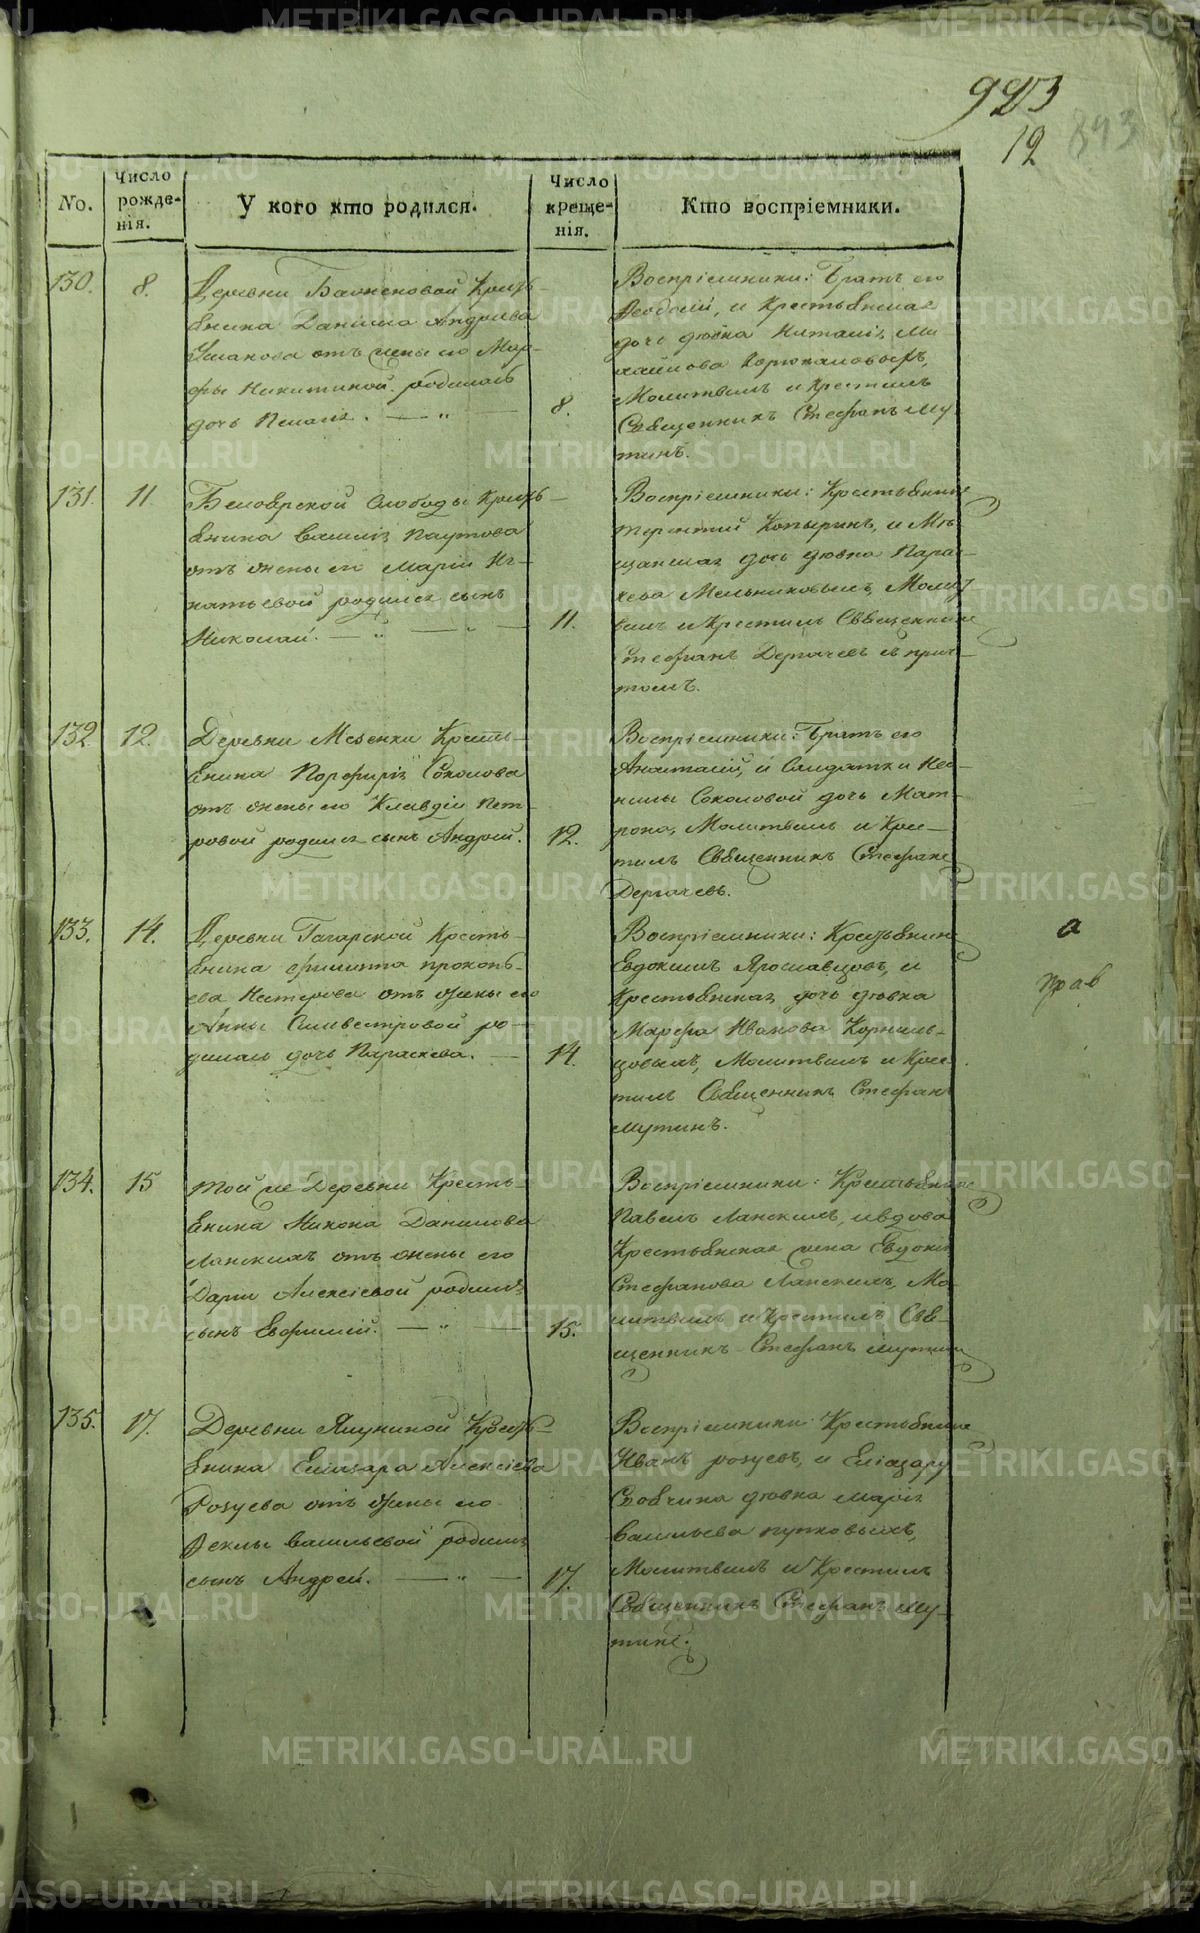 923
12
843
No.
Число рожде-нія.
У кого кто родился.
Число креще-нія.
Кто воспріемники.
130.
8.
Деревни Баженовой Кресть-
янина Даніила Андреева
Ушакова отъ жены его Мар-
фы Никитиной родилась
дочь Пелагія.
8.
Воспріемники: Братъ его
Ѳеодосій, и Крестьянская
дочь дѣвка Наталія Ми
хаилова
Молитвилъ и Крестилъ
Священникъ Стефанъ Му-
тинъ.
131.
11.
Белоярской Слободы Кресть-
янина Василія Паутова
отъ жены его Маріи Иг-
натьевой родился сынъ
Николай.
11.
Воспріемники: Крестьянинъ
терентій Копыринъ, и Мѣ-
щанская дочь дѣвка Парас-
кева Мельниковыхъ, Молит
вилъ и Крестилъ Священникъ
Стефанъ Дергачевъ съ прич-
томъ.
132.
12.
Деревни Мезенки Кресть-
янина Порфирія Соколова
отъ жены его Клавдіи Пет-
ровой родился сынъ Андрей.
12.
Воспріемники: Братъ его
Анастасій, и Солдатки Нео-
нилы Соколовой дочь Мат-
рона, Молитвилъ и Крес-
тилъ Священникъ Стефанъ
Дергачевъ.
133.
14.
Деревни Гагарской Кресть-
янина филиппа прокопь-
ева Нестерова отъ жены его
Анны Сильвестровой ро-
дилась дочь Параскева.
14.
Воспріемники: Крестьянинъ
Евдокимъ Ярославцовъ, и
Крестьянская дочь дѣвка
Марфа Иванова Корниль-
цовыхъ, Молитвилъ и Крес-
тилъ Священникъ Стефанъ
Мутинъ.
134.
15
той же Деревни Кресть-
янина Никона Данилова
Ланскихъ отъ жены его
Дарьи Алексіевой родился
сынъ Евфимій.
15.
Воспріемники: Крестьянинъ
Павелъ Ланскихъ, и вдова
Крестьянская жена Евдокія
Стефанова Ланскихъ, Мо-
литвилъ и Крестилъ Свя-
щенникъ Стефанъ Мутинъ
135.
17.
Деревни Ялуниной Кресть-
янина Еліазара Алексіева
Розуева отъ жены его
Ѳеклы Васильевой родился
сынъ Андрей.
17.
Воспріемники: Крестьянинъ
Иванъ розуевъ, и Еліазару
Своячина дѣвка Марія
Васильева пупковыхъ,
Молитвилъ и Крестилъ
Священникъ Стефанъ Му-
тинъ.
а
METRIKI.GASO-URAL.RU